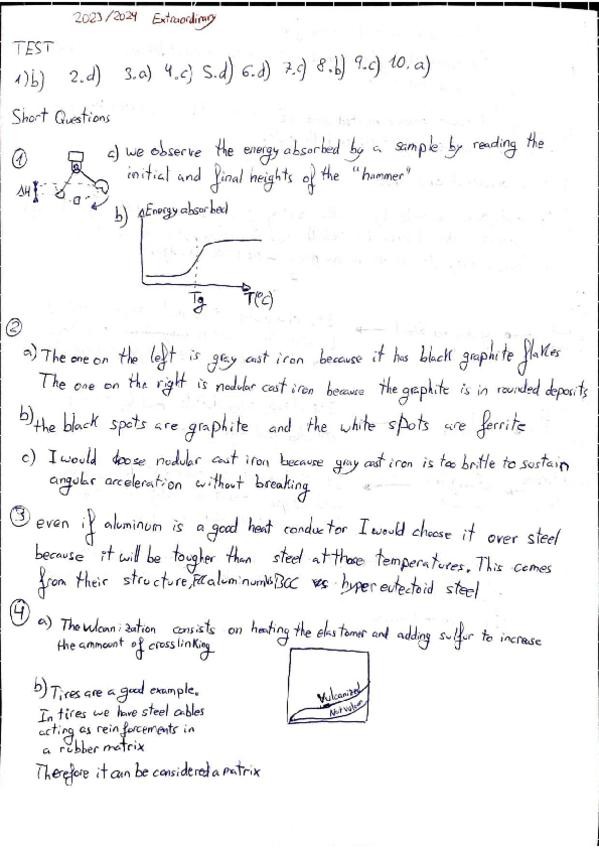 2023/2024 Extraordinary
TEST
1)b) 2.d) 3.a) 4.c) 5.d) 6.d) 7.c) 8.b) 9.c) 10.a)
Short Questions
① c) we observe the energy absorbed by a sample by reading the
initial and final heights of the "hammer"
ΔH
b) Energy absorbed
Tg T(ºC)
②
a) The one on the left is gray cast iron because it has black graphite flakes
The one on the right is nodular cast iron because the graphite is in rounded deposits
b) the black spots are graphite and the white spots are ferrite
c) I would choose nodular cast iron because gray cast iron is too brittle to sustain
angular acceleration without breaking
③ even if aluminum is a good heat conductor I would choose it over steel
because it will be tougher than steel at those temperatures. This comes
from their structure, FCC aluminum vs BCC hypereutectoid steel
④ a) The vulcanization consists on heating the elastomer and adding sulfur to increase
the ammount of crosslinking
Vulcanized
Not vulcan
b) Tires are a good example.
In tires we have steel cables
acting as reinforcements in
a rubber matrix
Therefore it can be considered a matrix